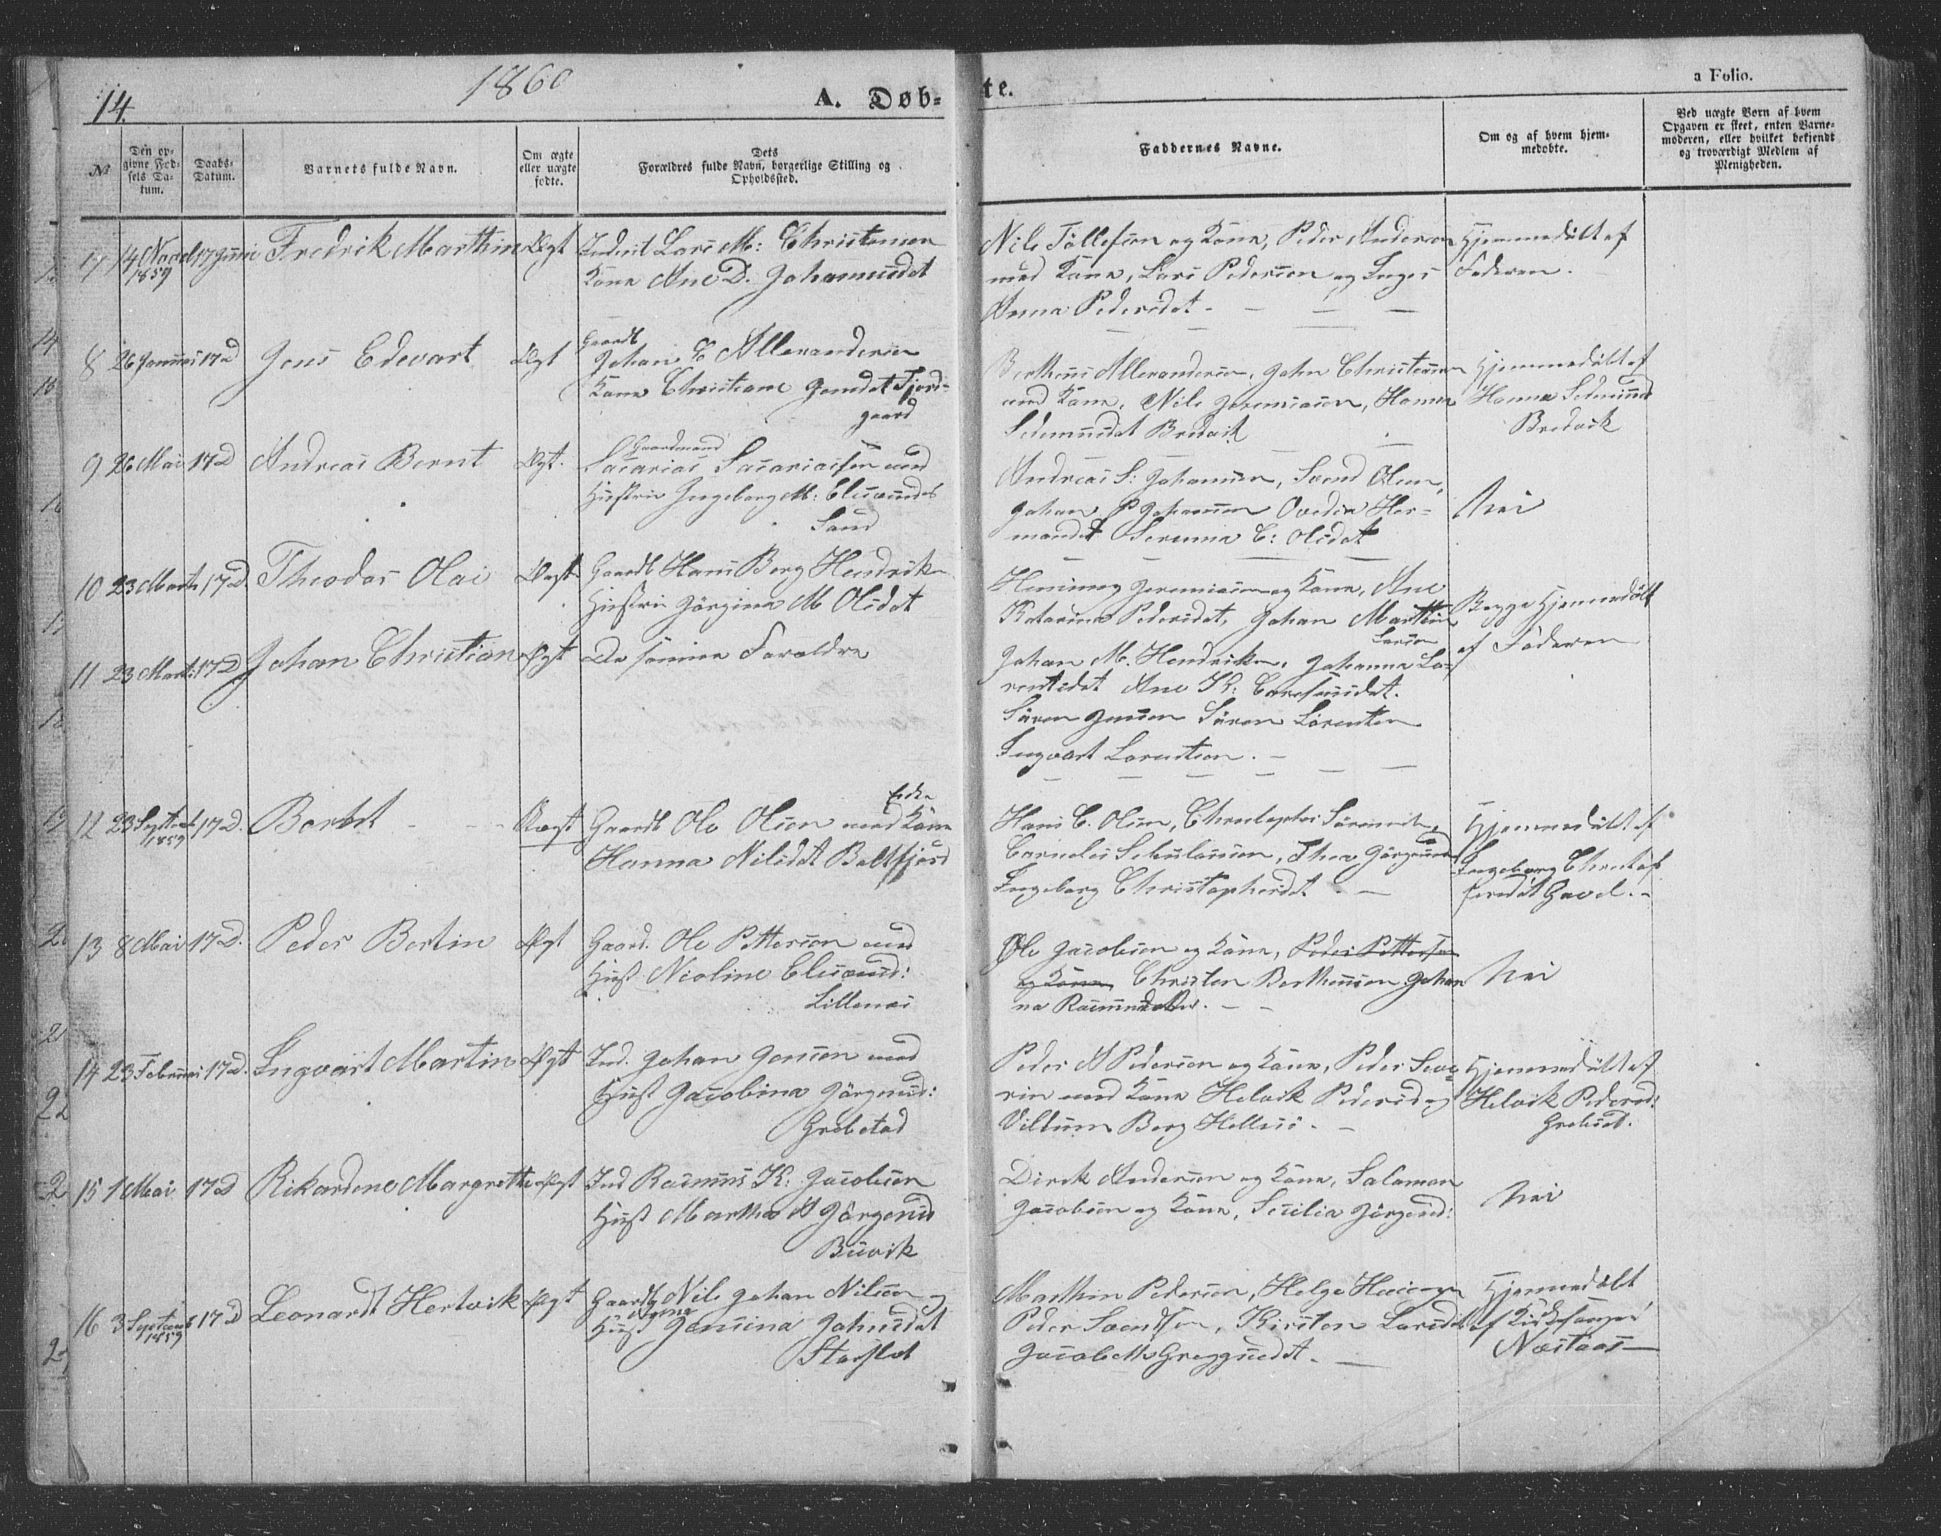 14.
1860
A. Døb-
te.
a Folio.
№
Den op-
givne Fød-
sels Da-
tum.
Daabs-
Datum.
Barnets fulde Navn.
Om ægte
eller uægte
fødte.
Dets
Forældres fulde Navn, borgerlige Stilling og
Opholdssted.
Faddernes Navne.
Om og af hvem hjem-
medøbte.
Ved uægte Børn af hvem
Opgaven er skeet, enten Barne-
moderen, eller hvilket bekjendt
og troværdigt Medlem af
Menigheden.
7 14 Novel 1859 17 Juni Fredrik Marthin Ægt
Inderst Lars M: Christensen
Kone Ane D. Johansdat
Nils Tollefsen og Kone, Peder Andersen
med Kone, Lars Pedersen og Inger
Anna Pedersdat.
Hjemmedøbt af
Faderen.
8 26 Januar 17 D Jens Edevart Ægt
Gaardb
Johan Allexandersen
Kone Christiane Jensdat Fjord-
gaard
Bertheus Allexandersen, John Christensen
med Kone, Nils Jeremiasen, Hanna
Sedemusdat Bredvik
Hjemmedøbt af
Hanna Sedemusd
Bredvik
9 26 Mai 17 D Andreas Bernt Ægt.
Gaardmand
Sacarias Sacariassen med
Hustru Ingeborg M:
Sand
Andreas S: Johansen, Svend Olsen,
Johan P Johansen Ovedia Her-
mansdt C: Olsdat
Nei
10 23 Marts 17 D. Theodor Olai Ægt
Gaardb Hans Berg Hendriks
Hustru Jørgina M Olsdat
Henning Jeremiasen og Kone, Ane
Katarina Pedersdat, Johan Martin
Larsen
Begge Hjemmedøbt
af Faderen
11 23 Marts 17 D. Johan Christian Ægt
De samme Forældre
Johan M. Hendriksen, Johanna Lo-
rentsdat Ane K:
Søren Jensen Søren Lorentsen
Ingvart Lorentsen.
12 23 Septemb 1859 17 D. Berbet Uægt
Enke
Gaardb Ole Olsen med Kone
Hanna Nilsdat Baltsfjord
Hans C. Olsen, Christopher Sørensen,
Cornelius Schulasen, Thea Jørgensd
Ingeborg Christophersdt.
Hjemmedøbt af
Ingeborg Christof
fersdat Gavl.
13 8 Mai 17 D. Peder Bertin Ægt
Gaard. Ole Pettersen med
Hust Nicoline
Lillenes
Ole Jacobsen og Kone, Peder Pettersen
og Kone, Christen Bertheusen Johan
na Rasmusdatter.
Nei
14 23 Februar 17 D. Ingvart Martin Ægt
Ind. Johan Jensen med
Hust Jacobina Jørgensd:
Grebstad
Peder A Pedersen og Kone, Peder Seve-
rin med Kone Helvik Pedersd og
Villum Berg Hellesø.
Hjemmedøbt af
Helvik Pedersd:
Grebst.
15 1 Mai 17 D Rikardine Margrethe Ægt
Ind Rasmus K: Jacobsen
Hust Martha A Jørgensd
Buvik
Dirck Andersen og Kone, Salamon
Jacobsen og Kone, Secilia Jørgensd:
Nei
16 3 Septemb 1859 17 D Leonardt Hertvik Ægt
Gaardb Nils Johan Nilsen og
Hust Jensina Johnsdat
Storslet
Marthin Pedersen, Helge
Peder Svendsen, Kirsten Larsdat
Jacob M Greggersdt.
Hjemmedøbt
af Kirkesanger
Næstaas